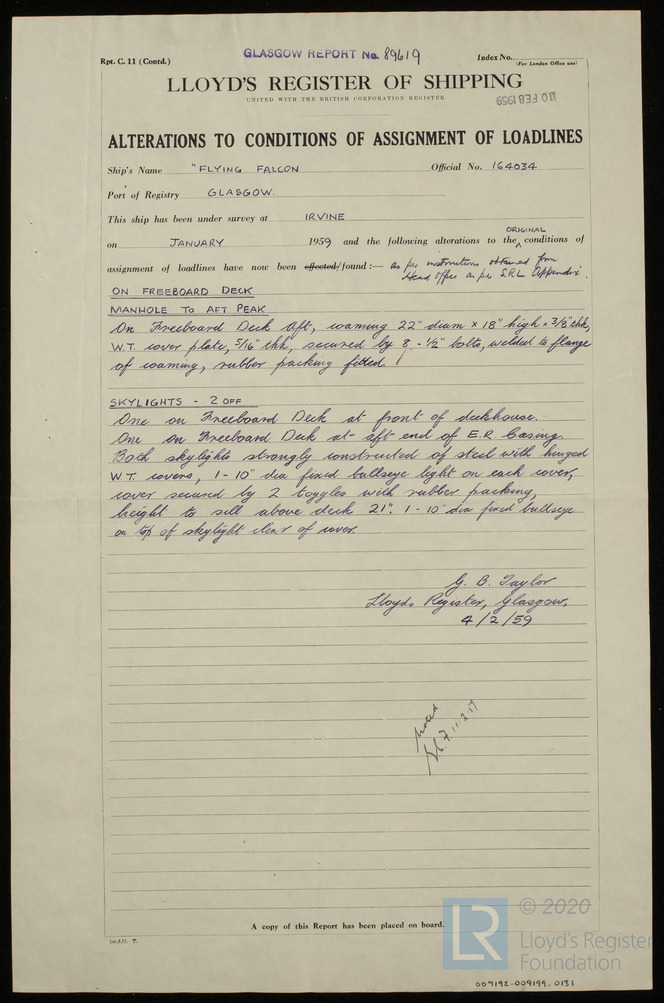 Rpt. C. 11 (Contd.)
GLASGOW REPORT No. 89619
Index No.
(For London Office use)
LLOYD'S REGISTER OF SHIPPING
UNITED WITH THE BRITISH CORPORATION REGISTER
10 FEB 1959
ALTERATIONS TO CONDITIONS OF ASSIGNMENT OF LOADLINES
Ship's Name "FLYING FALCON Official No. 164034
Port of Registry GLASGOW.
This ship has been under survey at IRVINE
ORIGINAL
on JANUARY 1959 and the following alterations to the conditions of
assignment of loadlines have now been effected/found:— as per instructions obtained from
Head Office as per S.R.L Appendix.
ON FREEBOARD DECK
MANHOLE TO AFT PEAK
On Freeboard Deck aft, coaming 22" diam x 18" high x 3/8" thk,
W.T. cover plate, 5/16" thk, secured by 8 - 1/2" bolts, welded to flange
of coaming, rubber packing fitted.
SKYLIGHTS - 2 OFF
One on Freeboard Deck at front of deckhouse.
One on Freeboard Deck at aft end of E.R. Casing.
Both skylights strongly constructed of steel with hinged
W.T. covers, 1 - 10" dia fixed bullseye light on each cover,
cover secured by 2 toggles with rubber packing,
height to sill above deck 21". 1 - 10" dia fixed bullseye
on top of skylight clear of cover.
G. B. Taylor
Lloyds Register, Glasgow.
4/2/59
Noted
11.2.59
A copy of this Report has been placed on board.
LR © 2020
Lloyd's Register
Foundation
009192-009199.0131